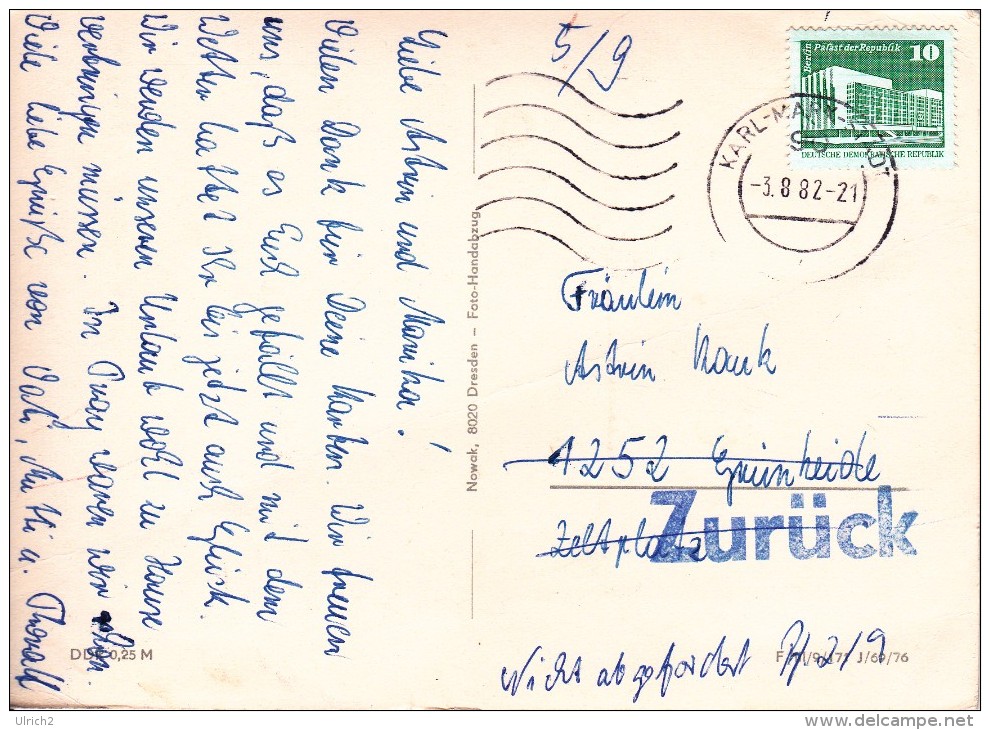 Liebe Astrin und Marika!
Vielen Dank für Deine Karten. Wir freuen
uns, daß es Euch gefällt und mit dem
Wetter hattet Ihr bis jetzt auch Glück.
Wir werden unseren Urlaub wohl zu Hause
verbringen müssen. In Prag waren wir schon.
Viele liebe Grüße von Vati, Mutti u.
DDR 0,25 M
Nowak, 8020 Dresden – Foto-Handabzug
5/9
Berlin Palast der Republik 10
DEUTSCHE DEMOKRATISCHE REPUBLIK
KARL-MARX-STADT
-3.8.82-21
Fräulein
Astrin
1252 Grünheide
Zeltplatz
Zurück
Nicht abgefordert 2/9
J/69/76
Ulrich2
www.delcampe.net